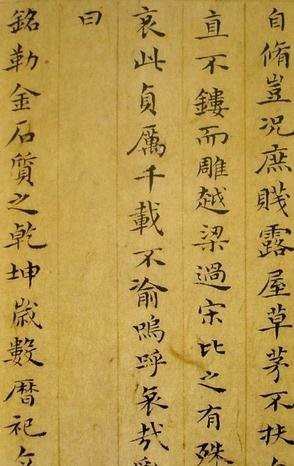 自脩豈況庶賤露屋草茅不扶
直不鏤而雕越梁過宋比之有殊
哀此貞厲千載不渝嗚呼哀哉
曰
銘勒金石質之乾坤歲數曆祀